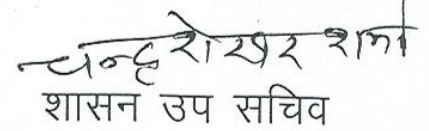 चन्द्रशेखर शर्मा
शासन उप सचिव